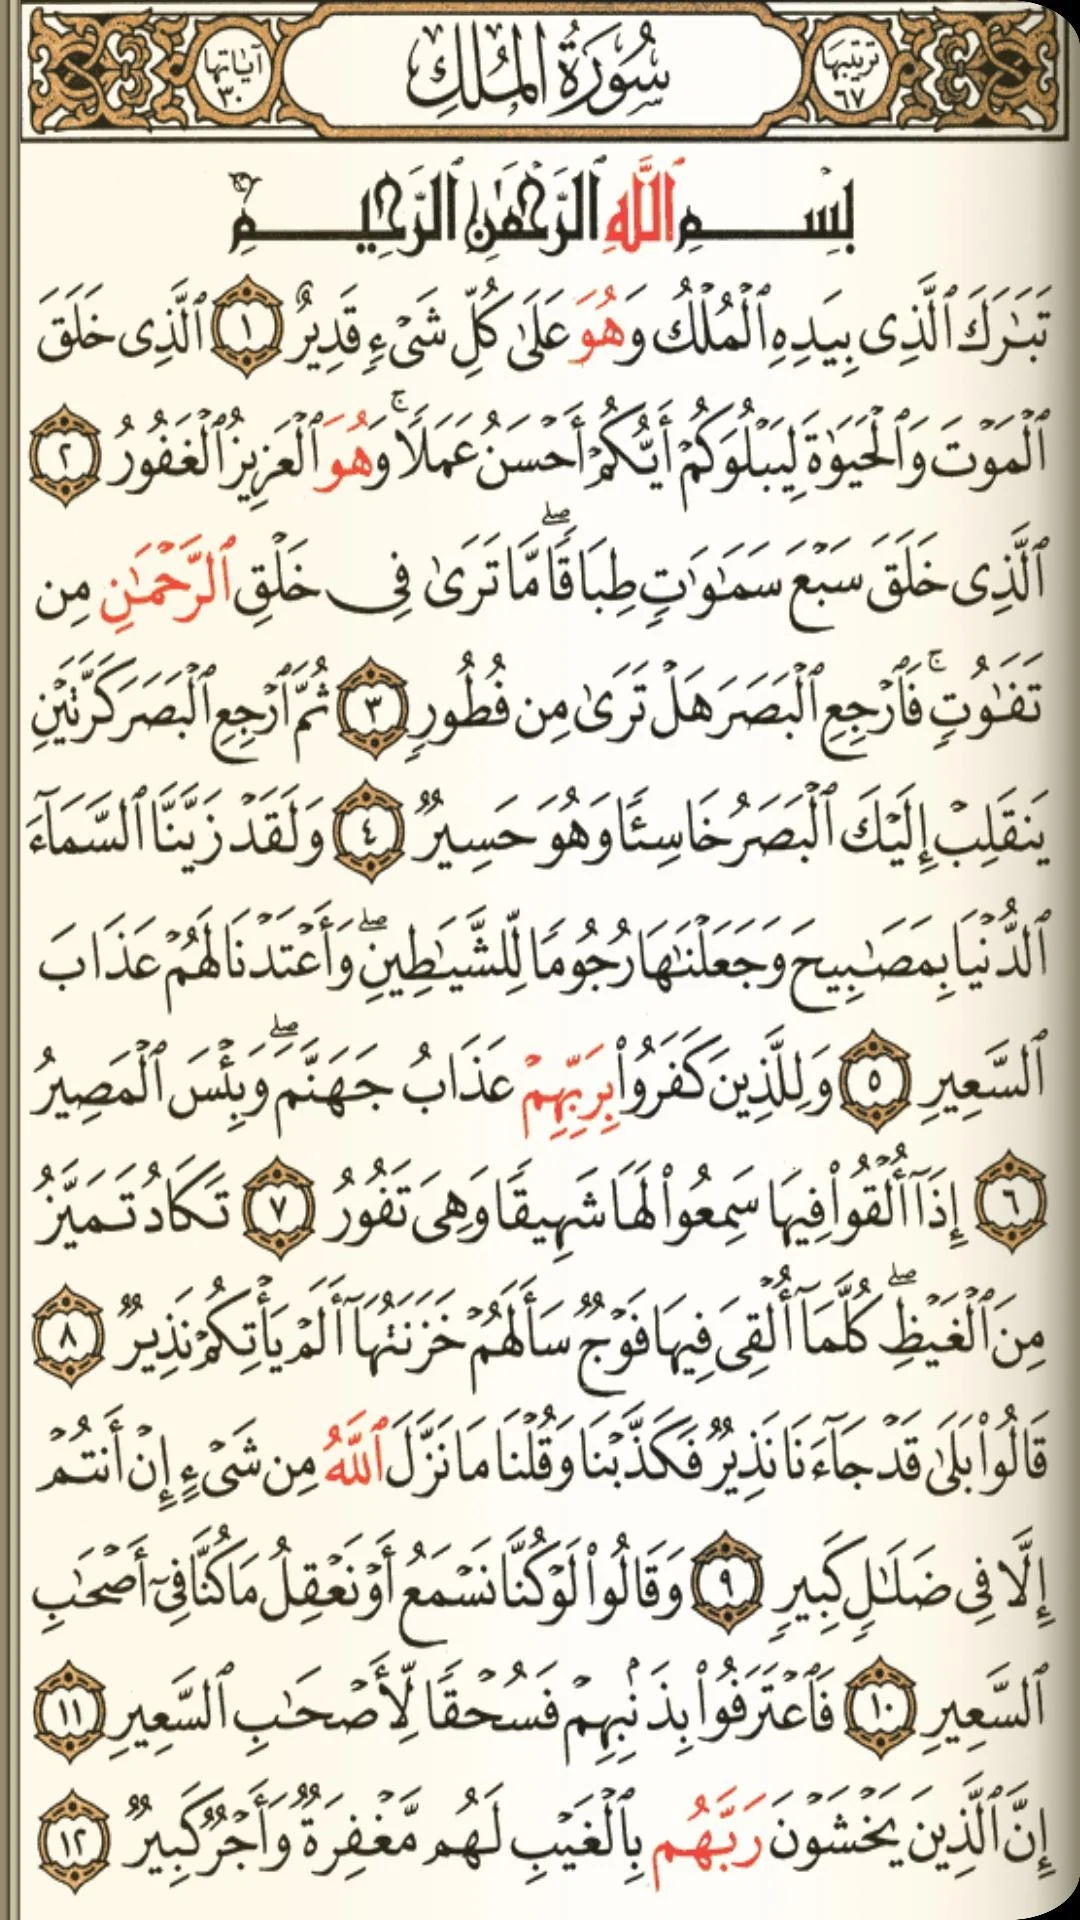 ترتيبها ٦٧
سُورَةُ المُلْكِ
آياتها ٣٠
بِسْمِ ٱللَّهِ ٱلرَّحْمَٰنِ ٱلرَّحِيمِ
تَبَٰرَكَ ٱلَّذِى بِيَدِهِ ٱلْمُلْكُ وَهُوَ عَلَىٰ كُلِّ شَىْءٍ قَدِيرٌ ١ ٱلَّذِى خَلَقَ
ٱلْمَوْتَ وَٱلْحَيَوٰةَ لِيَبْلُوَكُمْ أَيُّكُمْ أَحْسَنُ عَمَلًا ۚ وَهُوَ ٱلْعَزِيزُ ٱلْغَفُورُ ٢
ٱلَّذِى خَلَقَ سَبْعَ سَمَٰوَٰتٍ طِبَاقًا ۖ مَّا تَرَىٰ فِى خَلْقِ ٱلرَّحْمَٰنِ مِن
تَفَٰوُتٍ ۚ فَٱرْجِعِ ٱلْبَصَرَ هَلْ تَرَىٰ مِن فُطُورٍ ٣ ثُمَّ ٱرْجِعِ ٱلْبَصَرَ كَرَّتَيْنِ
يَنقَلِبْ إِلَيْكَ ٱلْبَصَرُ خَاسِئًا وَهُوَ حَسِيرٌ ٤ وَلَقَدْ زَيَّنَّا ٱلسَّمَآءَ
ٱلدُّنْيَا بِمَصَٰبِيحَ وَجَعَلْنَٰهَا رُجُومًا لِّلشَّيَٰطِينِ ۖ وَأَعْتَدْنَا لَهُمْ عَذَابَ
ٱلسَّعِيرِ ٥ وَلِلَّذِينَ كَفَرُوا۟ بِرَبِّهِمْ عَذَابُ جَهَنَّمَ ۖ وَبِئْسَ ٱلْمَصِيرُ
٦ إِذَآ أُلْقُوا۟ فِيهَا سَمِعُوا۟ لَهَا شَهِيقًا وَهِىَ تَفُورُ ٧ تَكَادُ تَمَيَّزُ
مِنَ ٱلْغَيْظِ ۖ كُلَّمَآ أُلْقِىَ فِيهَا فَوْجٌ سَأَلَهُمْ خَزَنَتُهَآ أَلَمْ يَأْتِكُمْ نَذِيرٌ ٨
قَالُوا۟ بَلَىٰ قَدْ جَآءَنَا نَذِيرٌ فَكَذَّبْنَا وَقُلْنَا مَا نَزَّلَ ٱللَّهُ مِن شَىْءٍ إِنْ أَنتُمْ
إِلَّا فِى ضَلَٰلٍ كَبِيرٍ ٩ وَقَالُوا۟ لَوْ كُنَّا نَسْمَعُ أَوْ نَعْقِلُ مَا كُنَّا فِىٓ أَصْحَٰبِ
ٱلسَّعِيرِ ١٠ فَٱعْتَرَفُوا۟ بِذَنۢبِهِمْ فَسُحْقًا لِّأَصْحَٰبِ ٱلسَّعِيرِ ١١
إِنَّ ٱلَّذِينَ يَخْشَوْنَ رَبَّهُم بِٱلْغَيْبِ لَهُم مَّغْفِرَةٌ وَأَجْرٌ كَبِيرٌ ١٢